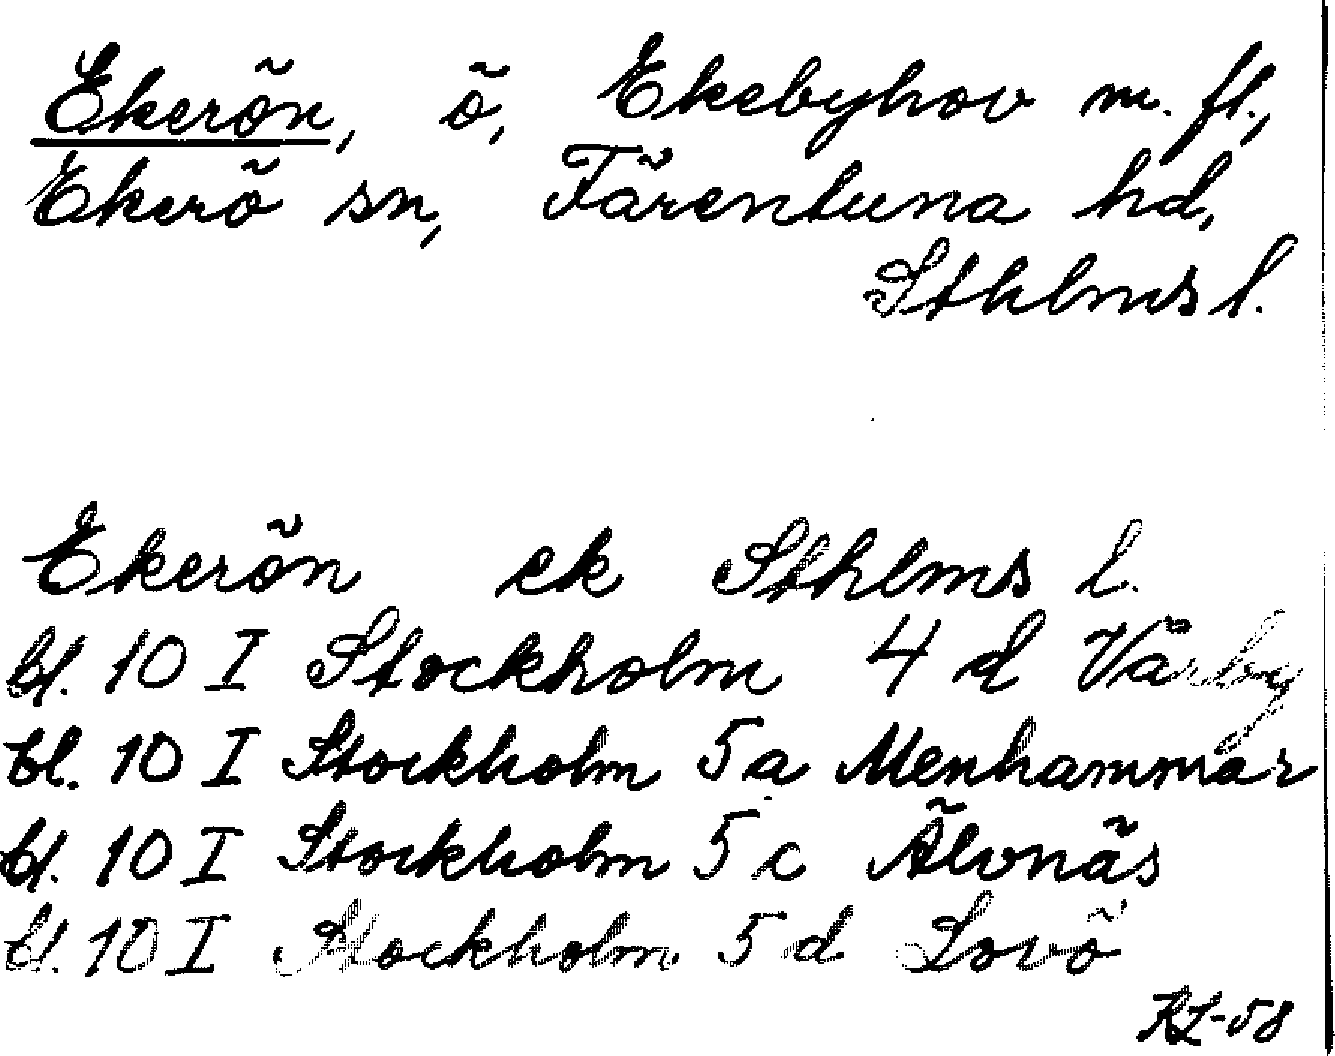 Ekerön, ö, Ekebyhov m. fl.,
Ekerö sn, Färentuna hd,
Sthlms l.
Ekerön ek Sthlms l.
bl. 10 I Stockholm 4 d Vårby
bl. 10 I Stockholm 5 a Menhammar
bl. 10 I Stockholm 5 c Älvnäs
bl. 10 I Stockholm 5 d Lovö
RL-58